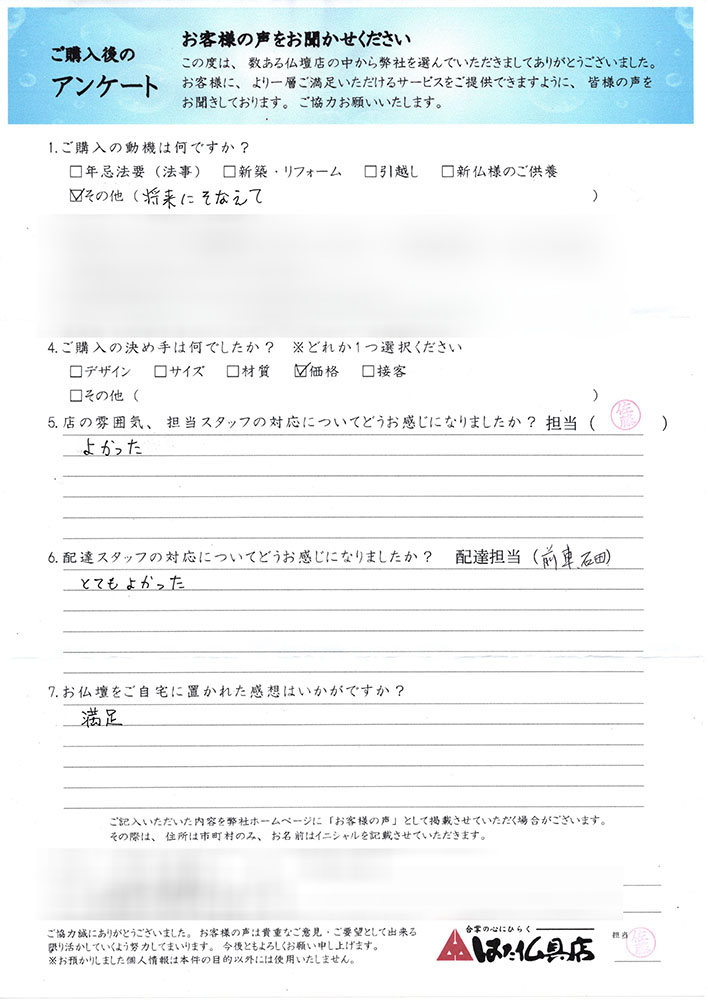 ご購入後の
アンケート
お客様の声をお聞かせください
この度は、数ある仏壇店の中から弊社を選んでいただきましてありがとうございました。
お客様に、より一層ご満足いただけるサービスをご提供できますように、皆様の声を
お聞きしております。ご協力お願いいたします。
1.ご購入の動機は何ですか？
□年忌法要（法事） □新築・リフォーム □引越し □新仏様のご供養
☑その他（将来にそなえて ）
4.ご購入の決め手は何でしたか？ ※どれか1つ選択ください
□デザイン □サイズ □材質 ☑価格 □接客
□その他（ ）
5.店の雰囲気、担当スタッフの対応についてどうお感じになりましたか？担当（佐藤）
よかった
6.配達スタッフの対応についてどうお感じになりましたか？ 配達担当（前車、石田）
とてもよかった
7.お仏壇をご自宅に置かれた感想はいかがですか？
満足
ご記入いただいた内容を弊社ホームページに「お客様の声」として掲載させていただく場合がございます。
その際は、住所は市町村のみ、お名前はイニシャルを記載させていただきます。
ご協力誠にありがとうございました。お客様の声は貴重なご意見・ご要望として出来る
限り活かしていくよう努力してまいります。今後ともよろしくお願い申し上げます。
※お預かりしました個人情報は本件の目的以外には使用いたしません。
合掌の心にひらく
はた仏具店
担当 佐藤